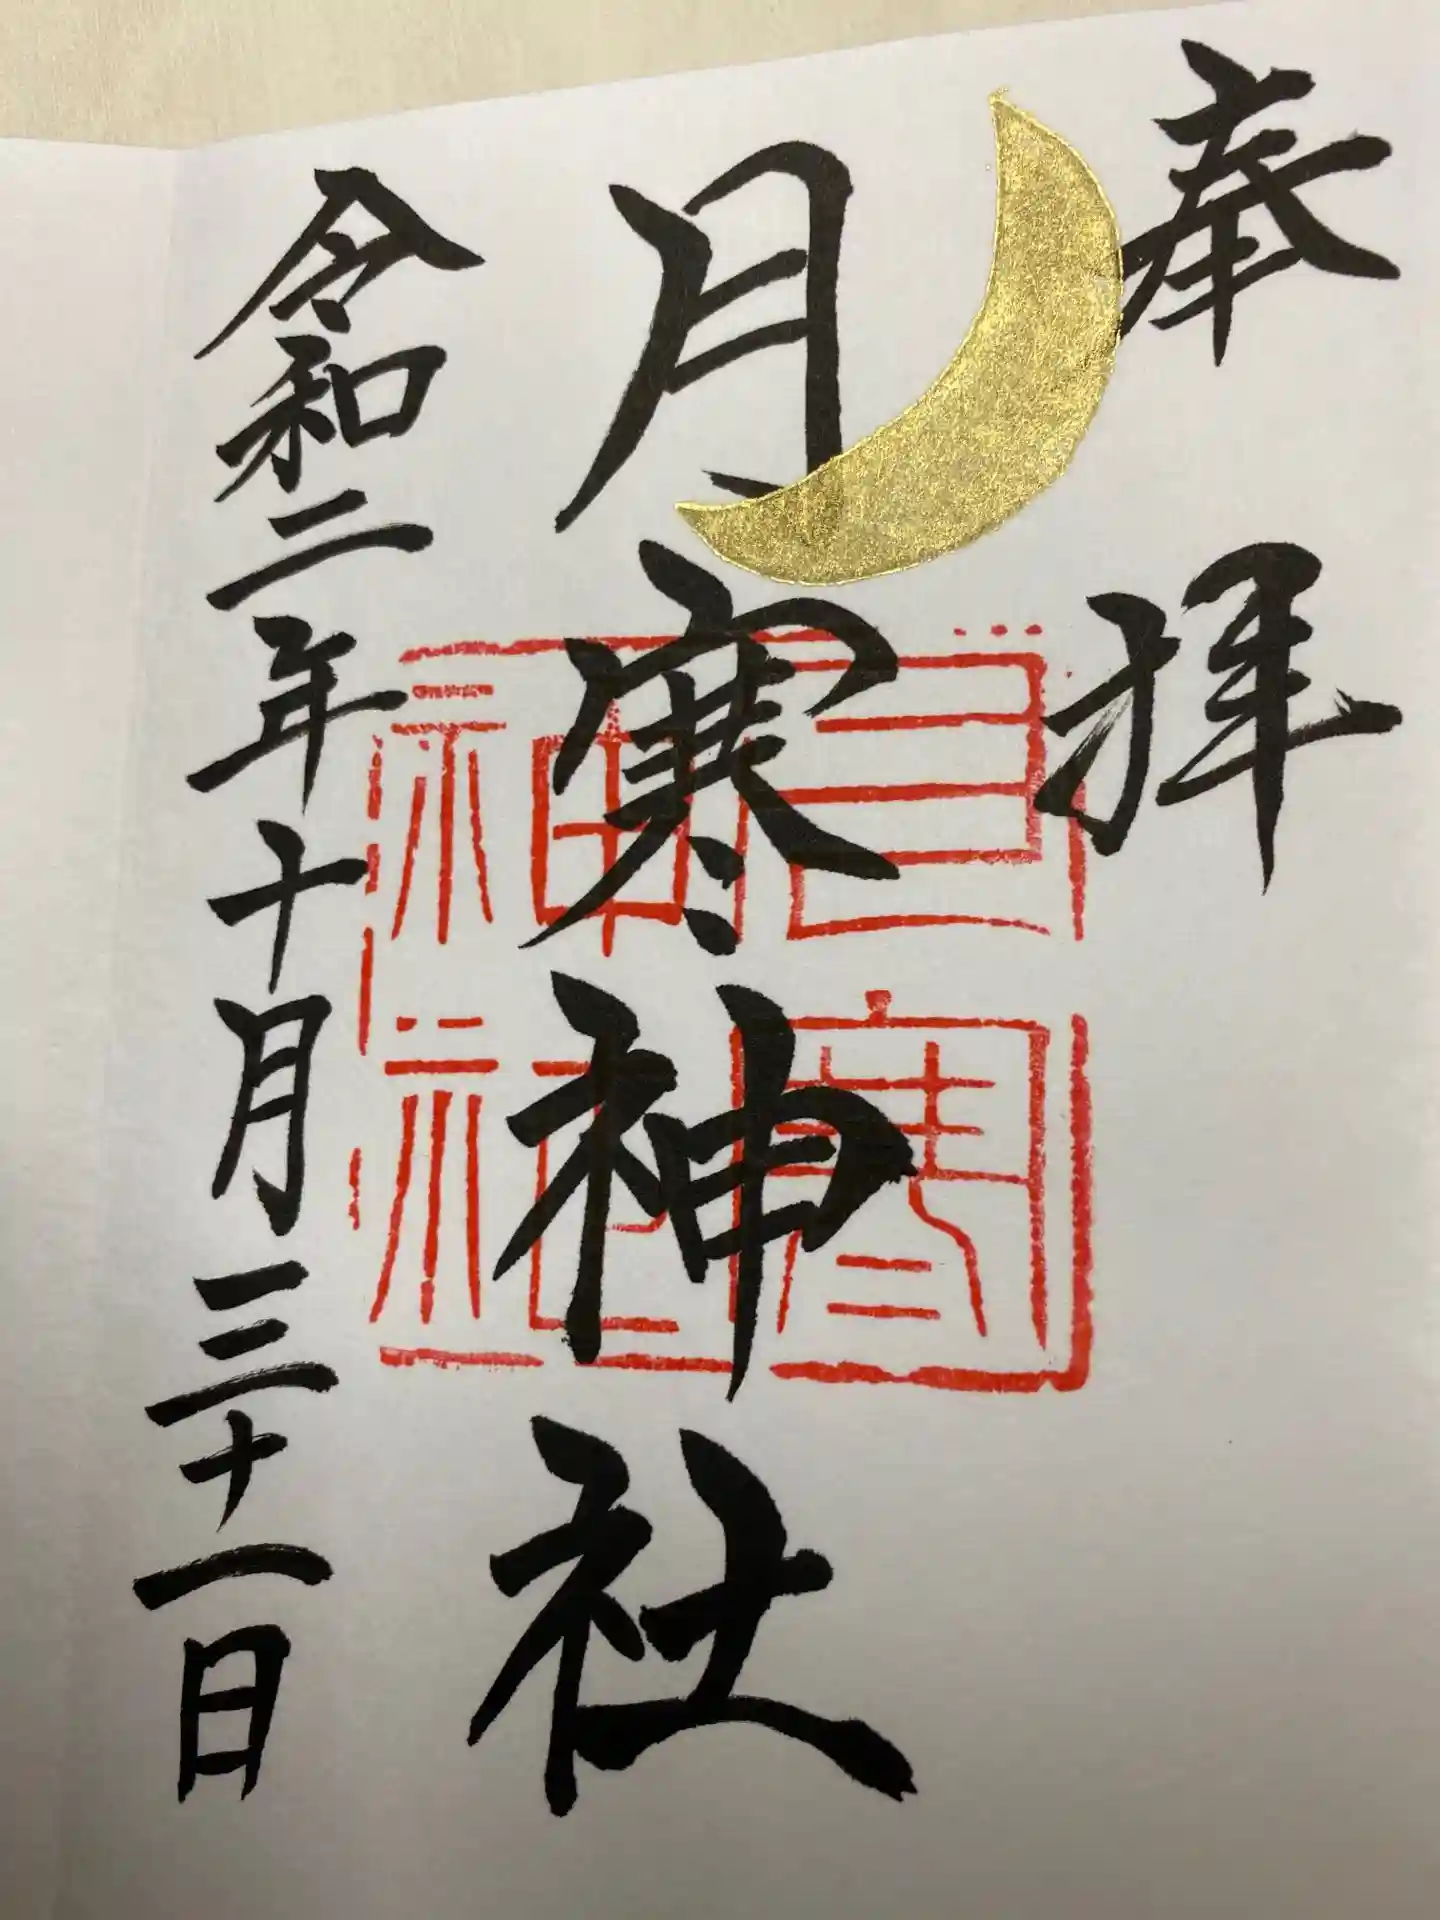 奉拝
月寒神社
月寒神社
令和二年十月三十一日